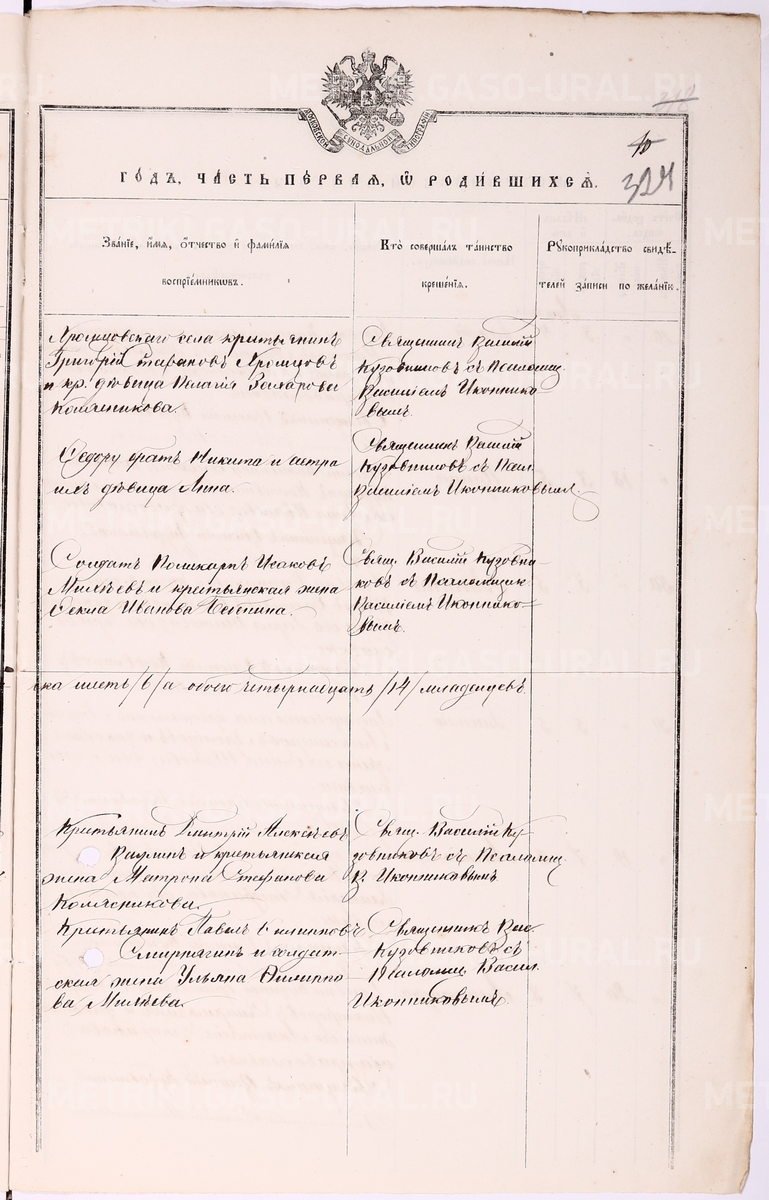 318
10
324
МОСКОВСКОЙ СѴНОДАЛЬНОЙ ТИПОГРАФІИ
ГО́ДЪ, ЧА́СТЬ ПЕ́РВАЯ, Ѡ҆ РОДИ́ВШИХСЯ.
Зва́ніе, и҆́мя, ѻ҆́тчество и҆ фами́лія
воспріе́мниковъ.
Кто̀ соверша́лъ та́инство
креще́нія.
Рꙋкоприкла́дство свидѣ́-
телей за́писи по жела́нію.
села крестьянинъ
Григорій Стефановъ
и кр. дѣвица Пелагія Захарова
Колясникова.
Священникъ Василій
Кузовниковъ съ Псаломщ.
Василіемъ Иконнико-
вымъ.
Ѳедору братъ Никита и сестра
имъ дѣвица Анна.
Священникъ Василій
Кузовниковъ съ Псал.
Василіемъ Иконниковымъ.
Солдатъ Поликарпъ Исаковъ
Милѣевъ и крестьянская жена
Ѳекла Иванова
Свящ. Василій Кузовни-
ковъ съ Псаломщик.
Василіемъ Иконнико-
вымъ.
ска шесть /6/ а обоего четырнадцать /14/ младенцевъ.
Крестьянинъ Дмитрій Алексѣевъ
и крестьянская
жена Матрона Стефанова
Колясникова.
Свящ. Василій Ку-
зовниковъ съ Псаломщ.
В. Иконниковымъ.
Крестьянинъ Павелъ Филипповъ
Смирнягинъ и солдат-
ская жена Ульяна Филиппо-
ва Милѣева.
Священникъ Вас.
Кузовниковъ съ
Псаломщ. Васил.
Иконниковымъ.
METRIKI.GASO-URAL.RU